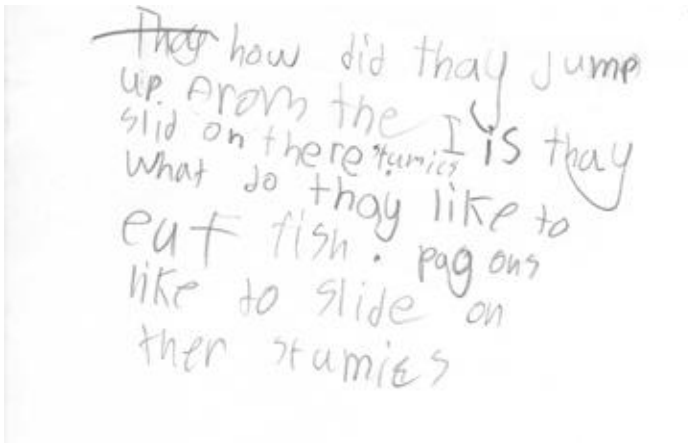 Thay how did thay jump
up. arom the I is thay
slid on there stumies
what do thay like to
eat fish. pagons
like to slide on
ther stumies